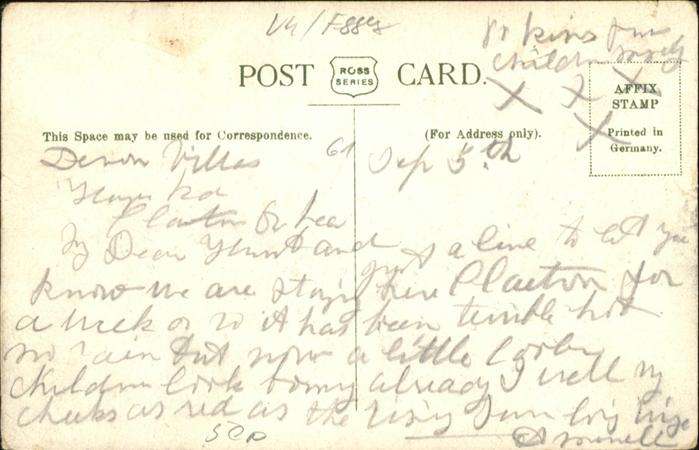 V4/Essex
kiss from
children myself
X X X
X
POST CARD.
ROSS
SERIES
AFFIX
STAMP
Printed in
Germany.
This Space may be used for Correspondence.
(For Address only).
Devon Villas 61 Sep 5th
on Sea
My Dear Husband just a line to let you
know we are staying here Clacton for
a week or so it has been terrible hot
no rain but now a little
children look bonny already I well my
cheeks as red as the rising sun
50p